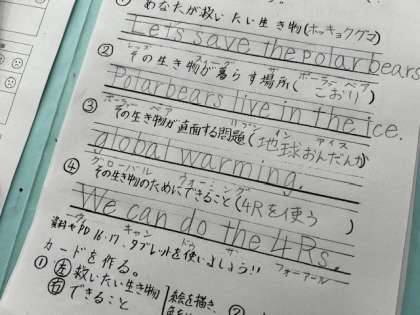 ① あなたが救いたい生き物(ホッキョクグマ)
Let's save the polar bears
② その生き物が暮らす場所(こおり)
ポーラー ベア
Polarbears live in the ice.
ポーラー ベア イン アイス
③ その生き物が直面する問題(地球おんだんか
global warming.
グローバル ウォーミング
④ その生き物のためにできること(4Rを使う)
We can do the 4Rs.
ウィー キャン ドゥ ザ フォーアールズ
資料やP16・17、タブレットを使いましょう!!
カードを作る。
① 左 救いたい生き物
右 できること
絵を描き、